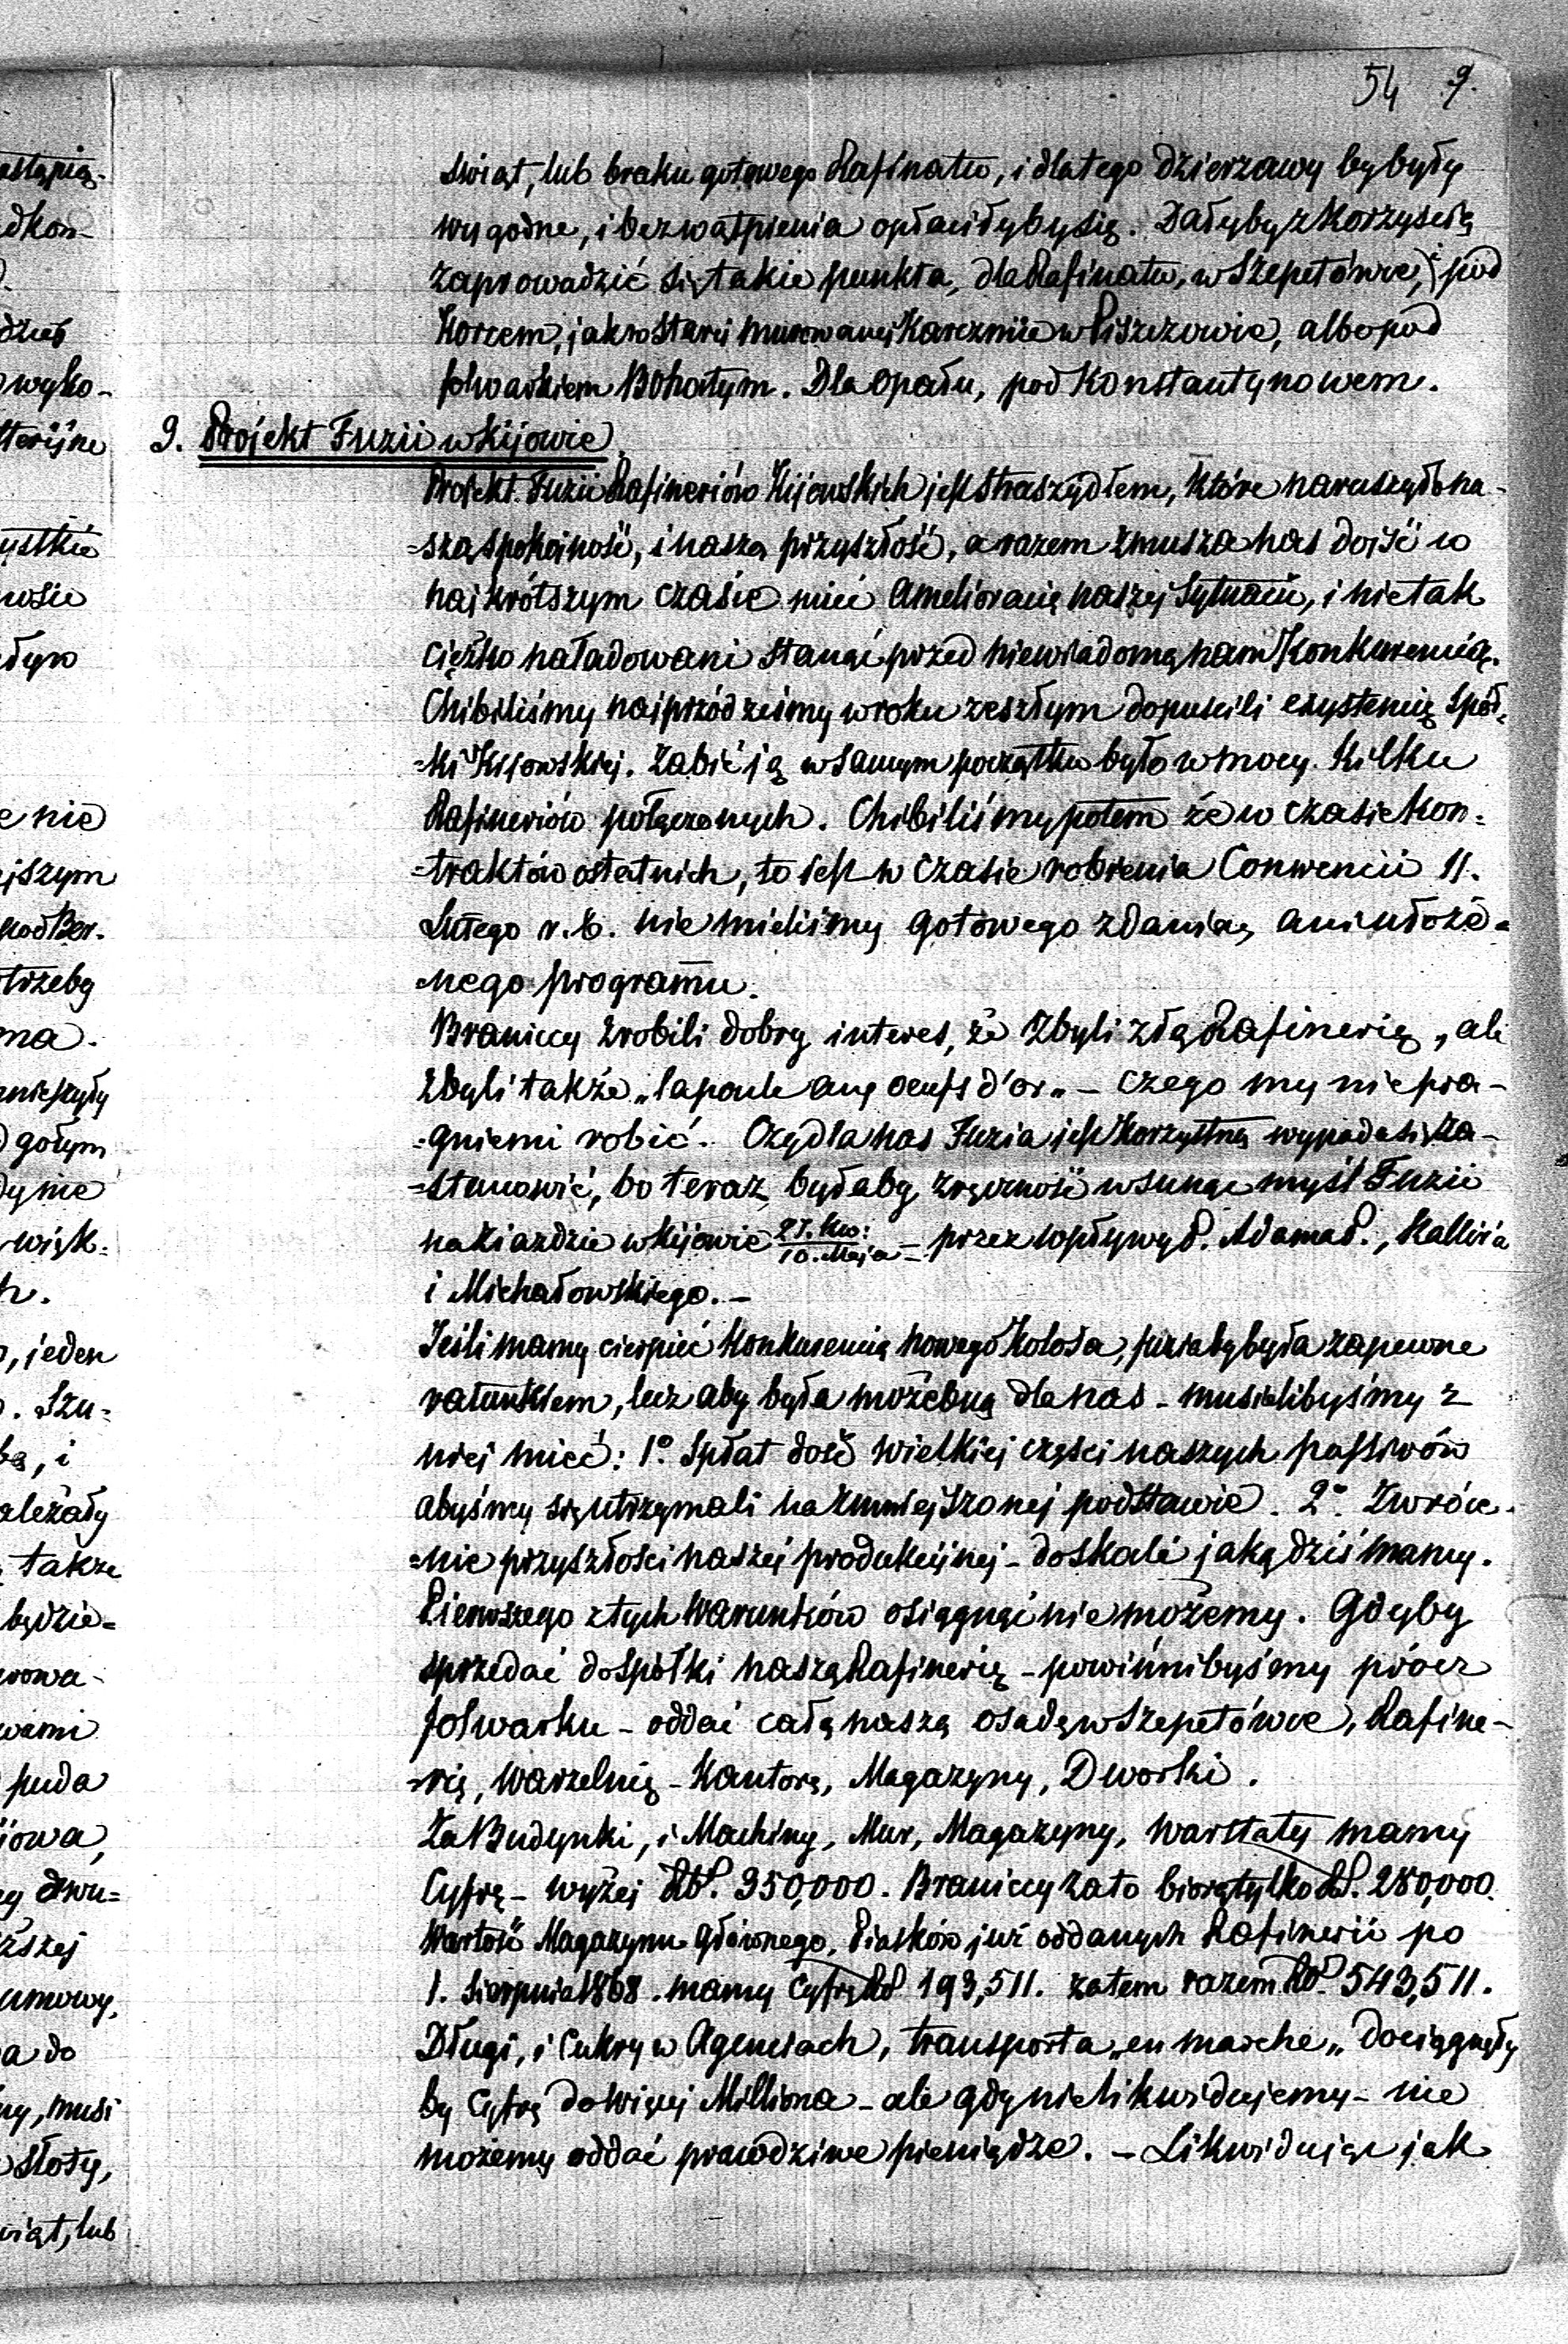 54 9.
świąt, lub braku gotowego Rafinatu, i dlatego dzierzawy by były
wygodne, i bezwątpienia opłaciłyby się. Dałyby z korzyscią
zaprowadzić się takie punkta, dla Rafinatu, w Szepetówce, i pod
Korcem, jak w starej murowanej Karczmie w Piszczowie, albo pod
folwarkiem Bohatym. Dla Opału, pod Konstantynowem.
9. Projekt Fuzii w Kijowie
Projekt Fuzii Rafineriów Kijowskich jest straszydłem, które naruszyło na-
=szą spokojność, i naszą przyszłość, a razem zmusza nas dojść w
najkrótszym czasie mieć Ameliorację naszej Sytuacii, i nie tak
ciężko naładowani stanąć przed niewiadomą nam Konkurencią.
Chibiliśmy najprzód żeśmy w roku zeszłym dopuscili exystencię Spół=
=ki Kijowskiej. Zabić ją w samym początku było w mocy kilku
Rafineriów połączonych. Chibiliśmy potem że w czasie kon=
=traktów ostatnich, to jest w czasie robienia Conwencii 11.
Lutego r. b. nie mieliśmy gotowego zdania, ani ułożo=
=nego programu.
Braniccy zrobili dobry interes, że zbyli złą Rafinerię, ale
zbyli także „la poule aux oeufs d'or„ – czego my nie pra-
=gniemi robić. Czy dla nas Fuzia jest korzystną wypada się za-
=stanowić, bo teraz byłaby zręczność wsunąć myśl Fuzii
na ziazdzie w Kijowie 27. Kw: / 10. Maja – przez wpływy P. Adama P.,
i Michałowskiego. –
Jeśli mamy cierpieć Konkurencią nowego Kolosa, fuzia by była zapewne
ratunkiem, lecz aby była możebną dla nas – musielibyśmy z
niej mieć: 1° Spłat dość wielkiej części naszych passivów
abyśmy się utrzymali na zmniejszonej podstawie. 2° Zwróce-
=nie przyszłości naszej produkcijnej – do skali jaką dziś mamy.
Pierwszego z tych warunków osiągnąć nie możemy. Gdyby
sprzedać do spółki naszą Rafinerię – powinnibyśmy prócz
folwarku – oddać całą naszą osadę w Szepetówce, Rafine-
=rię, Warzelnię – Kantorę, Magazyny, Dworki.
Za Budynki, i Machiny, Mur, Magazyny, warstaty mamy
Cyfrę – wyżej Rbl. 350,000. Braniccy za to biorą tylko Rbl. 280,000.
Wartość Magazynu głównego, Piasków już oddanych Rafinerii po
1. Sierpnia 1868. mamy Cyfrę Rbl 193,511. zatem razem Rbl. 543,511.
Długi, i Cukry w Agenciach, transporta „en marche„ dociągnęły
by Cyfrę do więcej Milliona – ale gdy nie likwidujemy – nie
możemy oddać prawdziwe pieniądze. – Likwidując jak